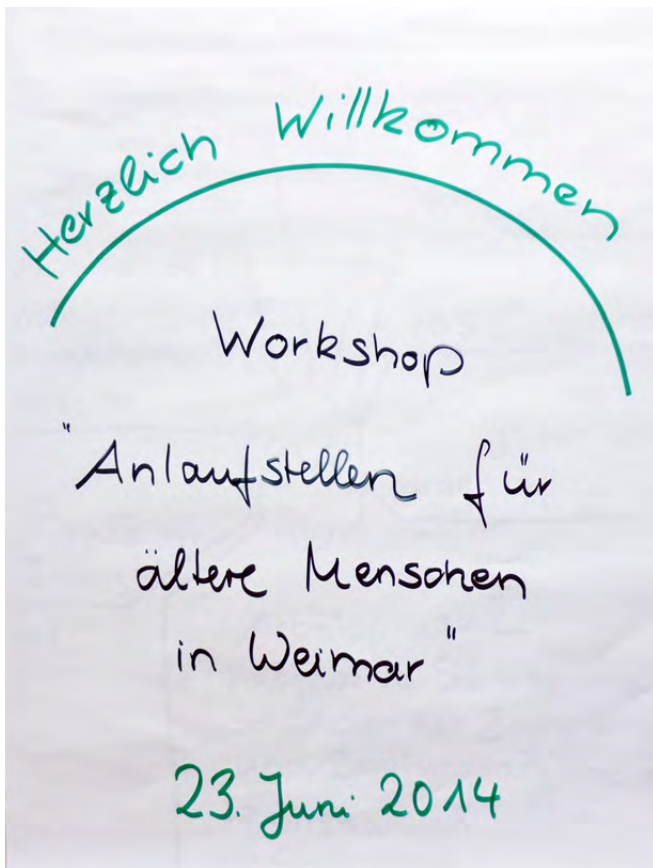 Herzlich Willkommen
Workshop
"Anlaufstellen für
ältere Menschen
in Weimar"
23. Juni 2014